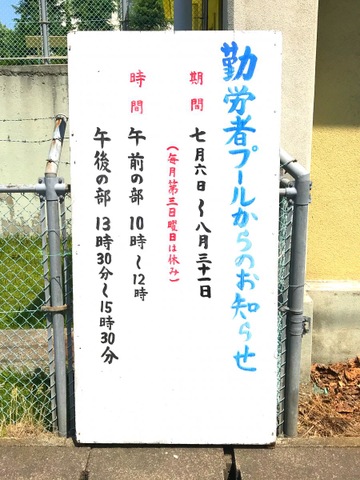 勤労者プールからのお知らせ
期間 七月六日〜八月三十一日
(毎月第三日曜日は休み)
時間 午前の部 10時〜12時
午後の部 13時30分〜15時30分